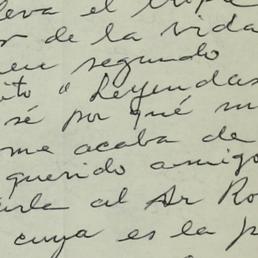 leva el
r de la vida
segundo
ito "Leyendas
sé por qué su
me acaba de
querido amigo
arla al Sr Ro
cuya es la p